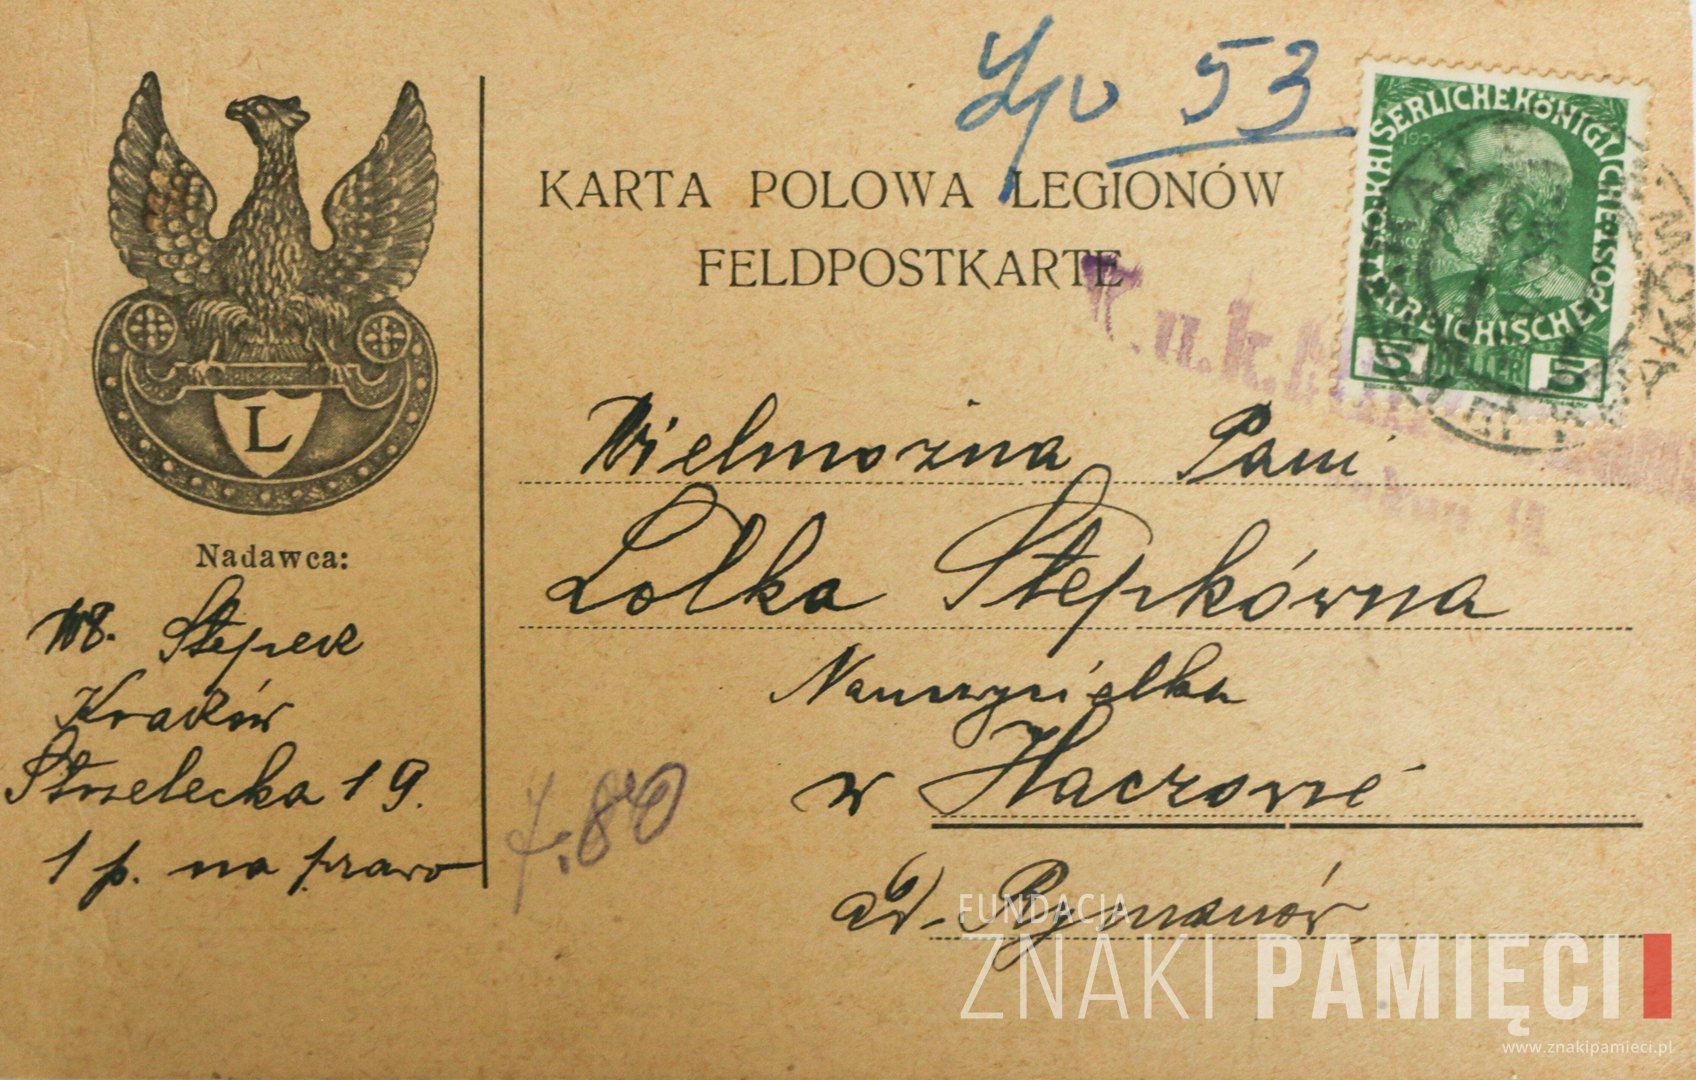 53
KARTA POLOWA LEGIONÓW
FELDPOSTKARTE
KAISERLICHE KÖNIGLICHE ÖSTERREICHISCHE POST
5 HELLER 5
K.u.k.
L
Nadawca:
Wł. Stępek
Kraków
Strzelecka 19.
1 p. na prawo
Wielmożna Pani
Lolka Stepkówna
Nauczycielka
w Haczowie
ad. Rymanów
FUNDACJA
ZNAKI PAMIĘCI
www.znakipamieci.pl